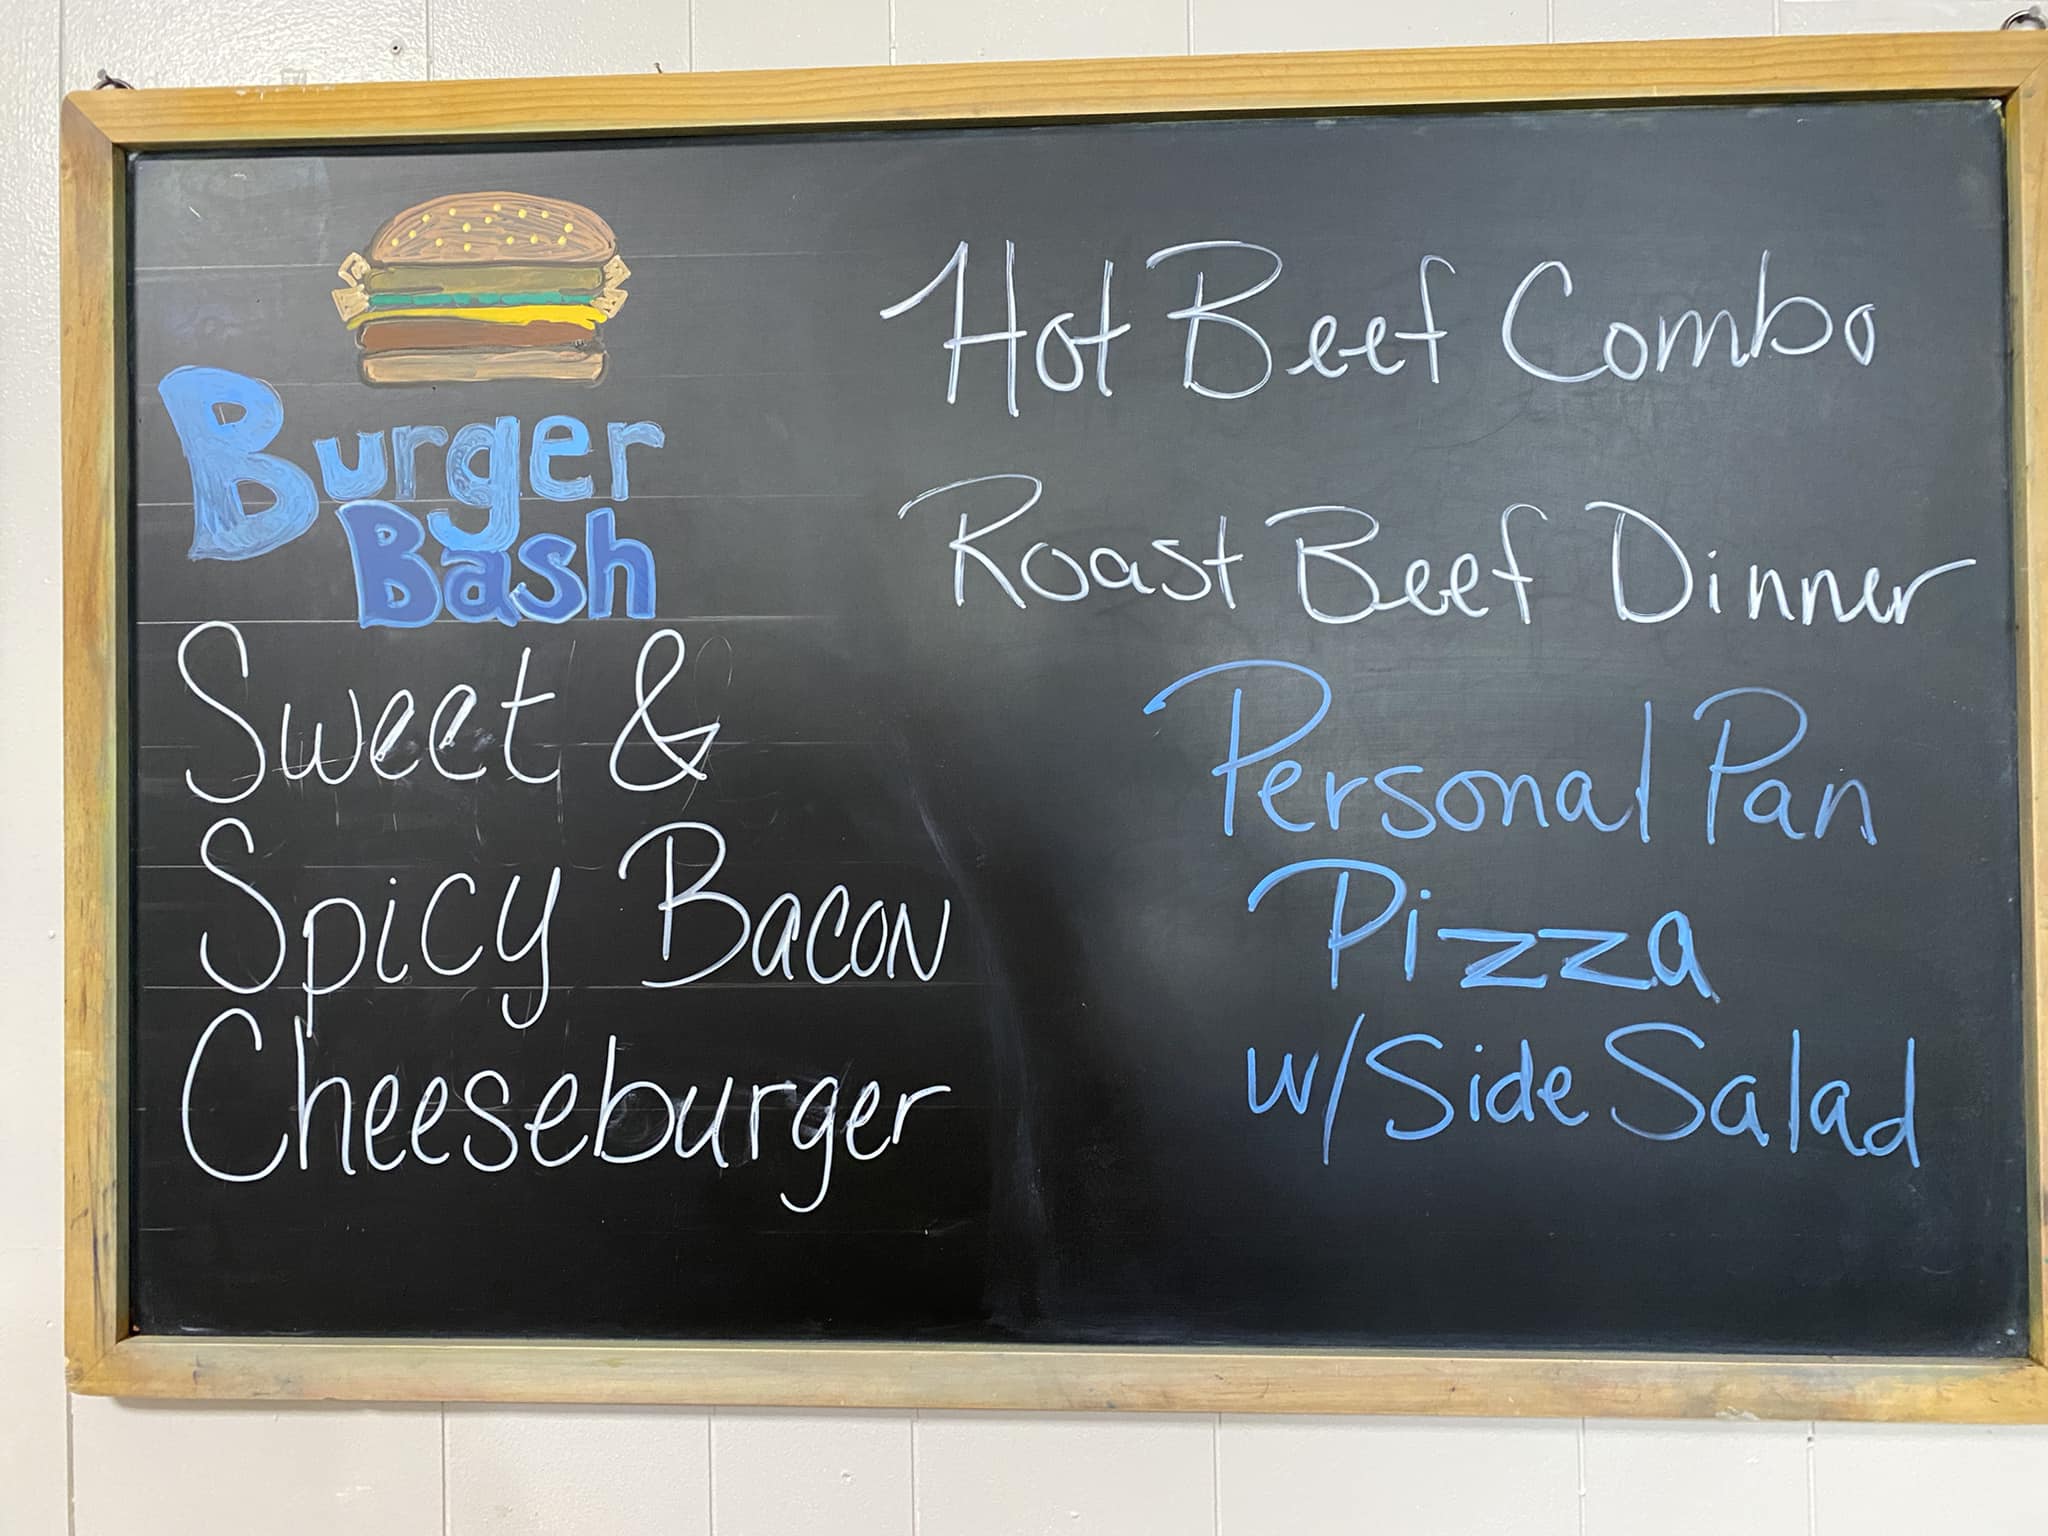 Burger
Bash
Sweet &
Spicy Bacon
Cheeseburger
Hot Beef Combo
Roast Beef Dinner
Personal Pan
Pizza
w/Side Salad